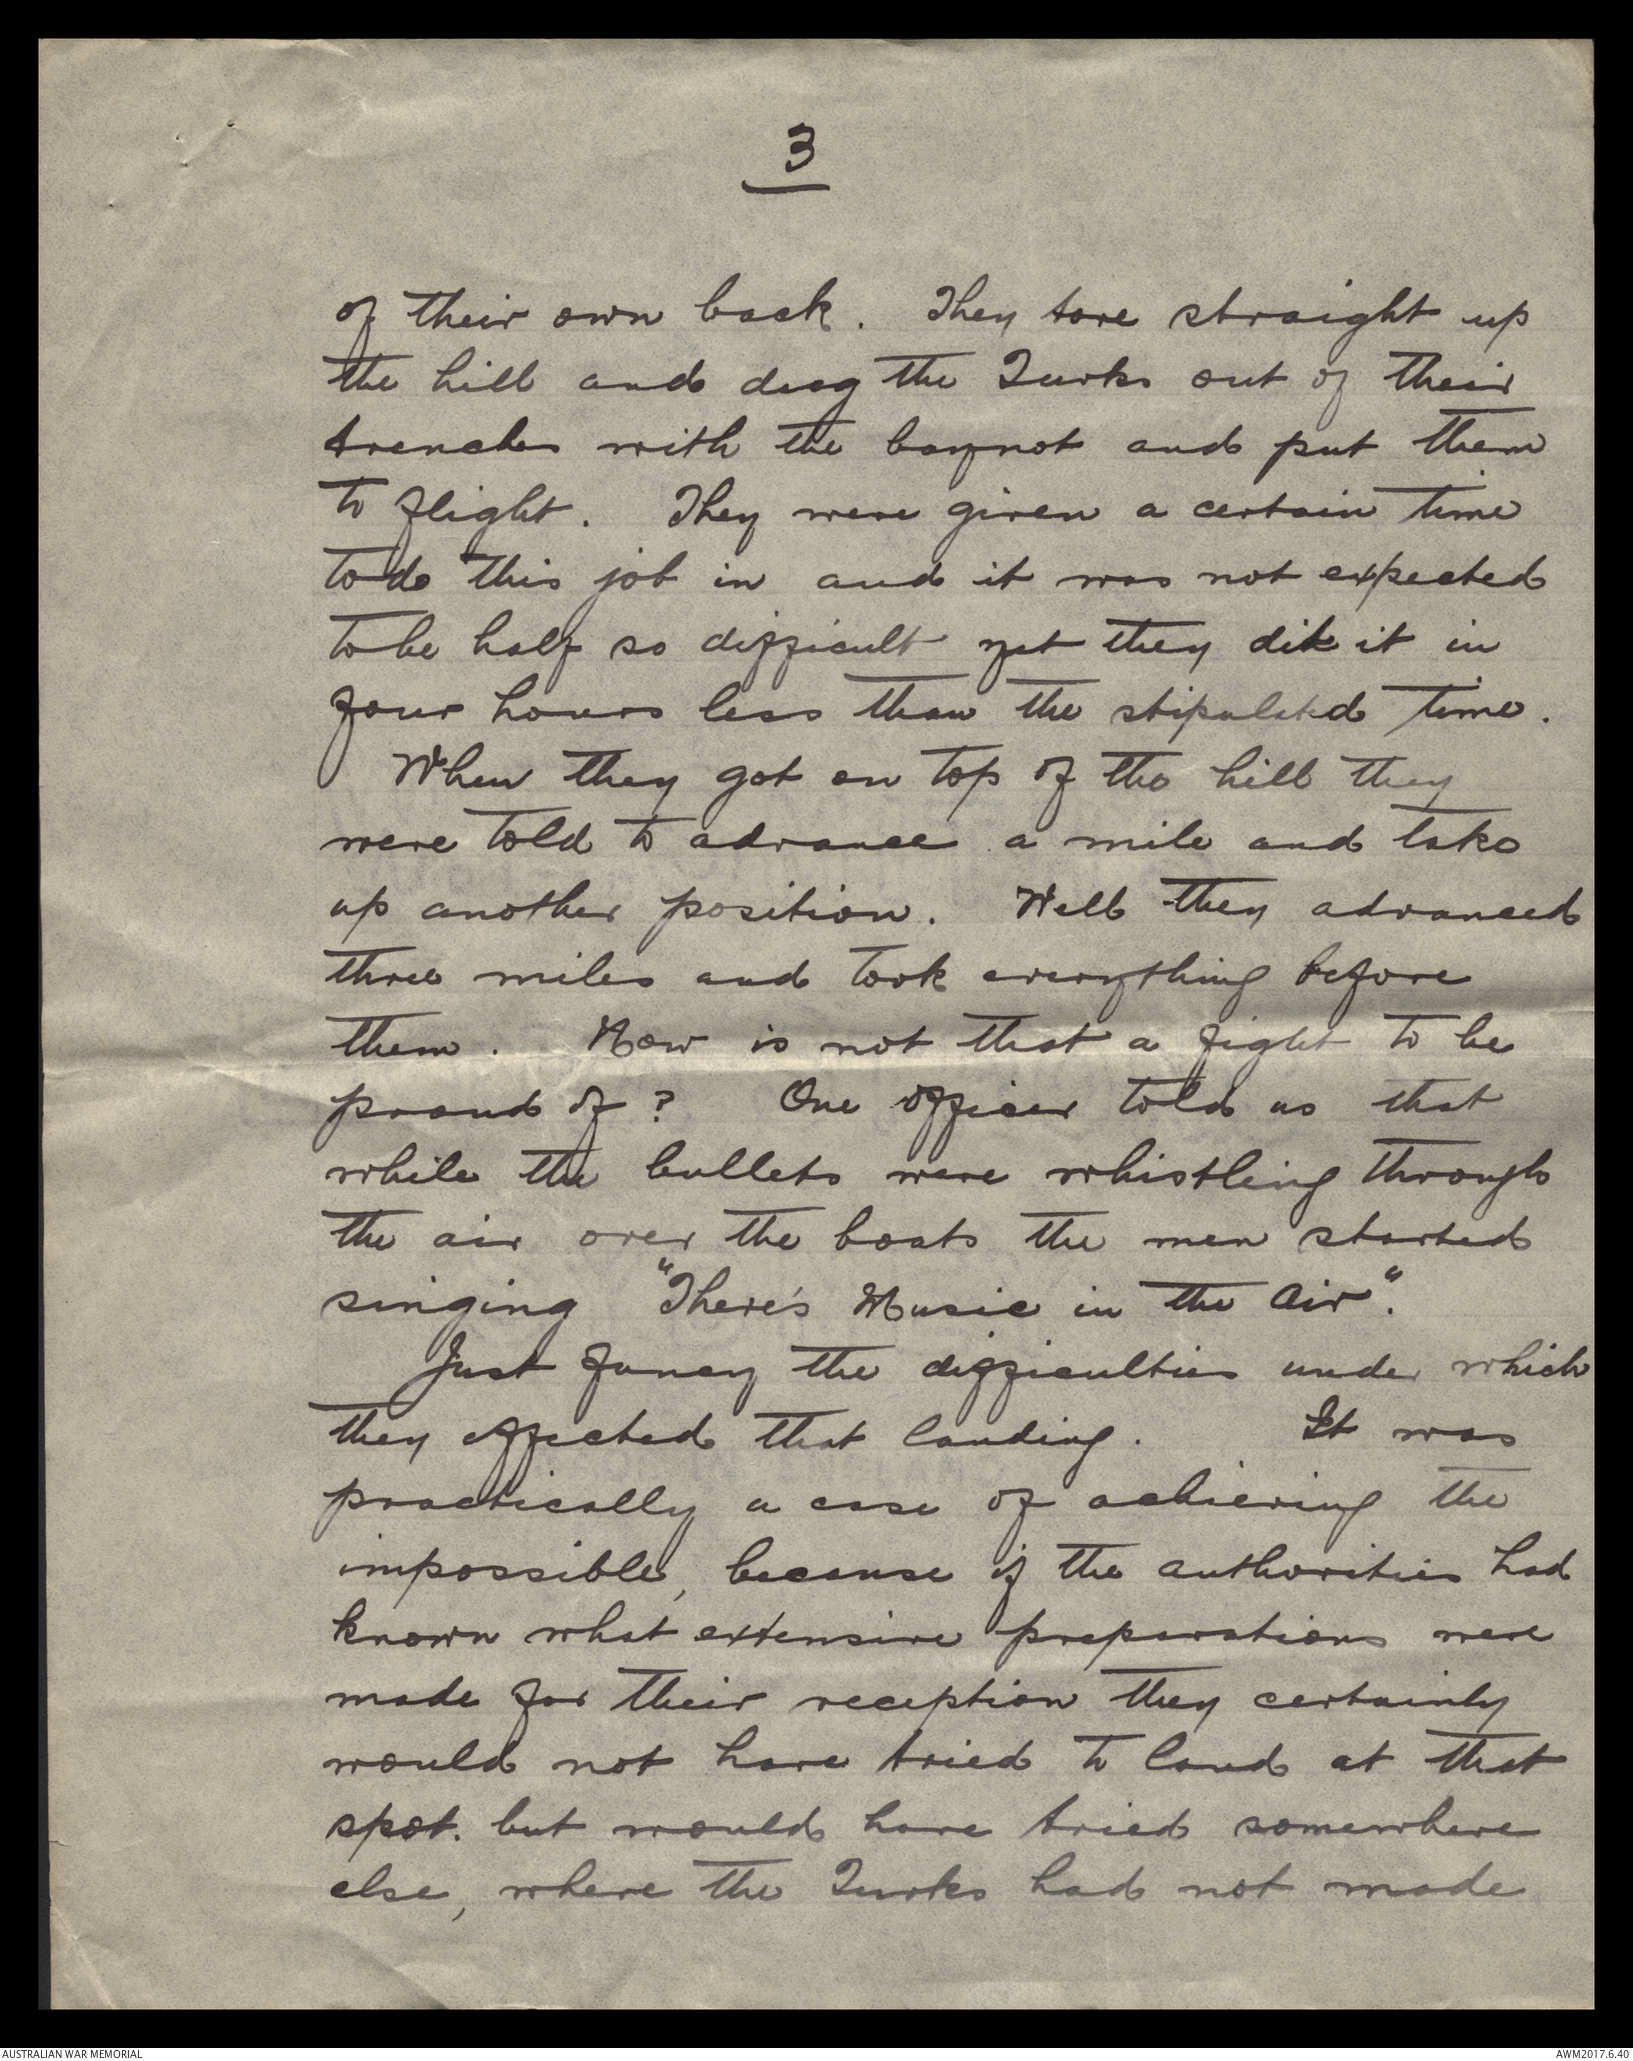 3
of their own back. They tore straight up
the hill and drag the Turks out of their
trenches with the baynot and put them
to flight. They were given a certain time
to do this job in and it was not expected
to be half so difficult yet they did it in
four hours less than the stipulated time.
When they got on top of the hill they
were told to advance a mile and take
up another position. Well they advanced
three miles and took everything before
them. Now is not that a fight to be
proud of? One officer told us that
while the bullets were whistling through
the air over the boats the men started
singing "There's Music in the Air".
Just fancy the difficulties under which
they effected that landing. It was
practically a case of achieving the
impossible, because if the authorities had
known what extensive preparations were
made for their reception they certainly
would not have tried to land at that
spot. but would have tried somewhere
else, where the Turks had not made
AUSTRALIAN WAR MEMORIAL
AWM2017.6.40